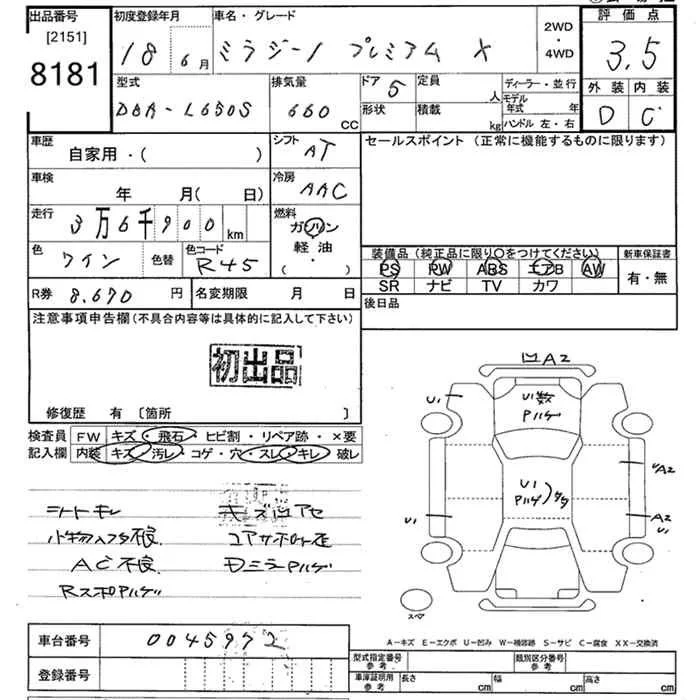 出品番号 [2151] 8181
初度登録年月 18 6月
車名・グレード ミラジーノ プレミアム X
2WD・4WD
評価点 3.5
外装 D 内装 C
型式 DBA-L650S
排気量 660 CC
ドア 5
形状
定員 人
積載 kg
ディーラー・並行
モデル年式 年
ハンドル 左・右
車歴 自家用・( )
シフト AT
セールスポイント (正常に機能するものに限ります)
車検 年 月( 日)
冷房 AAC
走行 3万6千900 km
燃料 ガソリン 軽油 ・ ( )
色 ワイン 色替
色コード R45
装備品(純正品に限り○をつけてください)
PS PW ABS エアB AW
SR ナビ TV カワ
新車保証書 有・無
R券 8.670 円
名変期限 月 日
後日品
注意事項申告欄(不具合内容等は具体的に記入して下さい)
初出品
修復歴 有 〔箇所 〕
検査員記入欄
FW キズ・飛石・ヒビ割・リペア跡・×要
内装 キズ・汚レ・コゲ・穴・スレ・キレ・破レ
シートキレ
AC不良
Dミラーハゲ
A2
U1
U1数
U1
A2
U1
A2
U1
スペア
A-キズ E-エクボ U-凹み W-補修跡 S-サビ C-腐食 XX-交換済
車台番号 0045972
登録番号
型式指定番号 参考
類別区分番号 参考
車庫証明用 参考 長さ cm 幅 cm 高さ cm